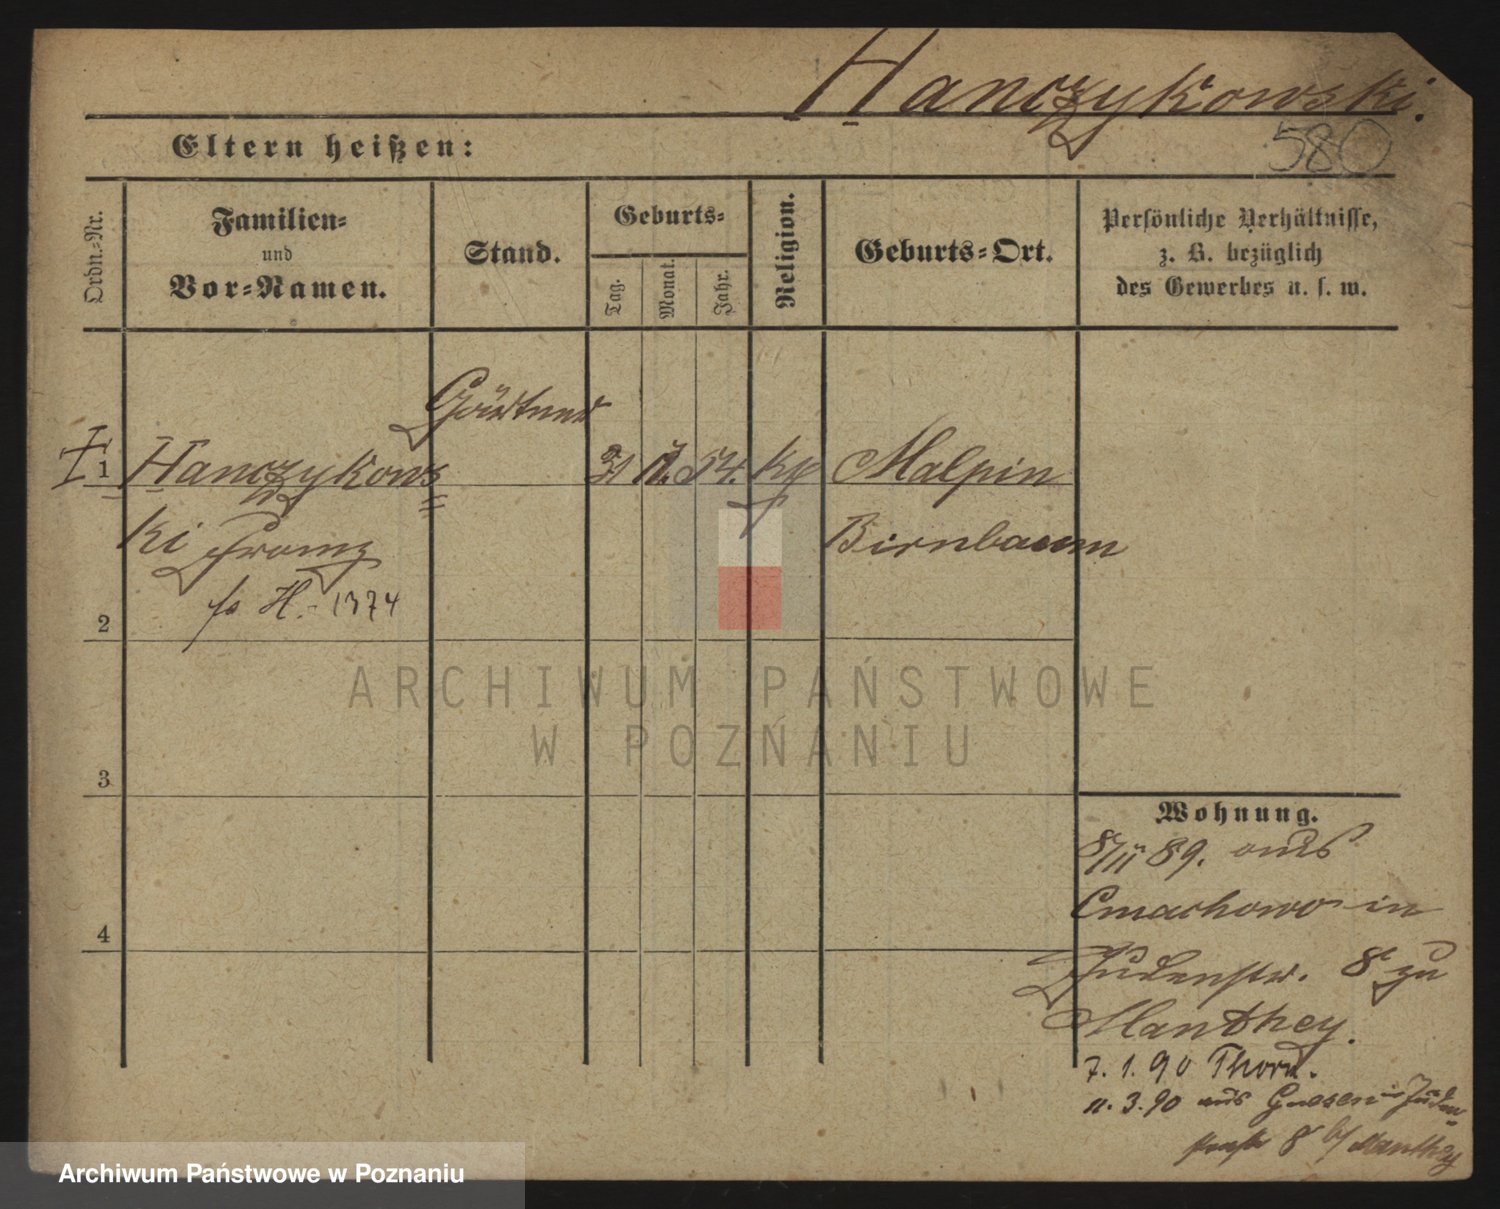 Hanczykowski.
580
Eltern heißen:
Ordn.-Nr.
Familien-
und
Vor-Namen.
Stand.
Geburts-
Tag.
Monat.
Jahr.
Religion.
Geburts-Ort.
Persönliche Verhältnisse,
z. B. bezüglich
des Gewerbes u. s. w.
Gärtner
1 Hanczykows 54. Malpin
ki Franz Birnbaum
H. - 1374
2
ARCHIWUM PAŃSTWOWE
W POZNANIU
3
Wohnung.
8/II 89. aus
Cmachowo in
4
Judenstr. 8 zu
Manthey.
7. 1. 90 Thorn.
11. 3. 90 aus Gnesen in Juden-
straße 8 b/ Manthey
Archiwum Państwowe w Poznaniu